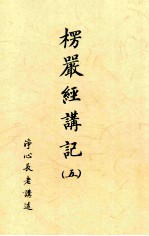 楞嚴經講記
(五)
淨心長老講述